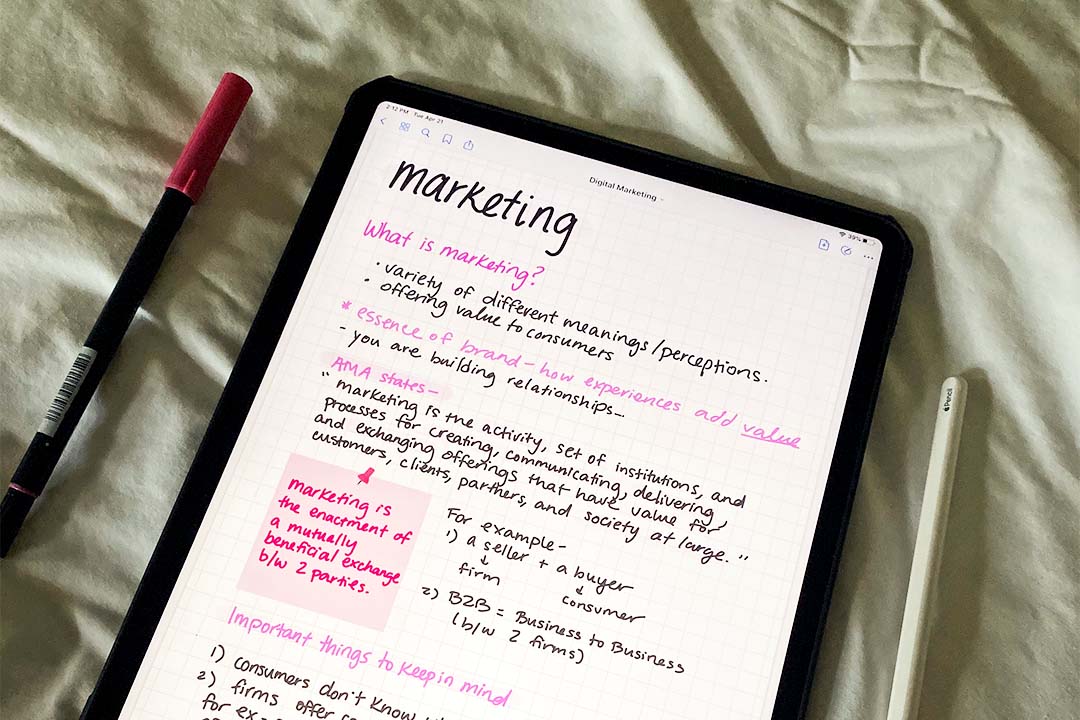 2:12 PM Tue Apr 21
Digital Marketing
39%
marketing
What is marketing?
• variety of different meanings/perceptions.
• offering value to consumers
* essence of brand - how experiences add value
- you are building relationships...
AMA states -
"marketing is the activity, set of institutions, and
processes for creating, communicating, delivering,
and exchanging offerings that have value for
customers, clients, partners, and society at large."
marketing is
the enactment of
a mutually
beneficial exchange
b/w 2 parties.
For example -
1) a seller + a buyer
↓ ↓
firm consumer
2) B2B = Business to Business
(b/w 2 firms)
Important things to keep in mind
1) consumers don't know
2) firms offer
for
Pencil